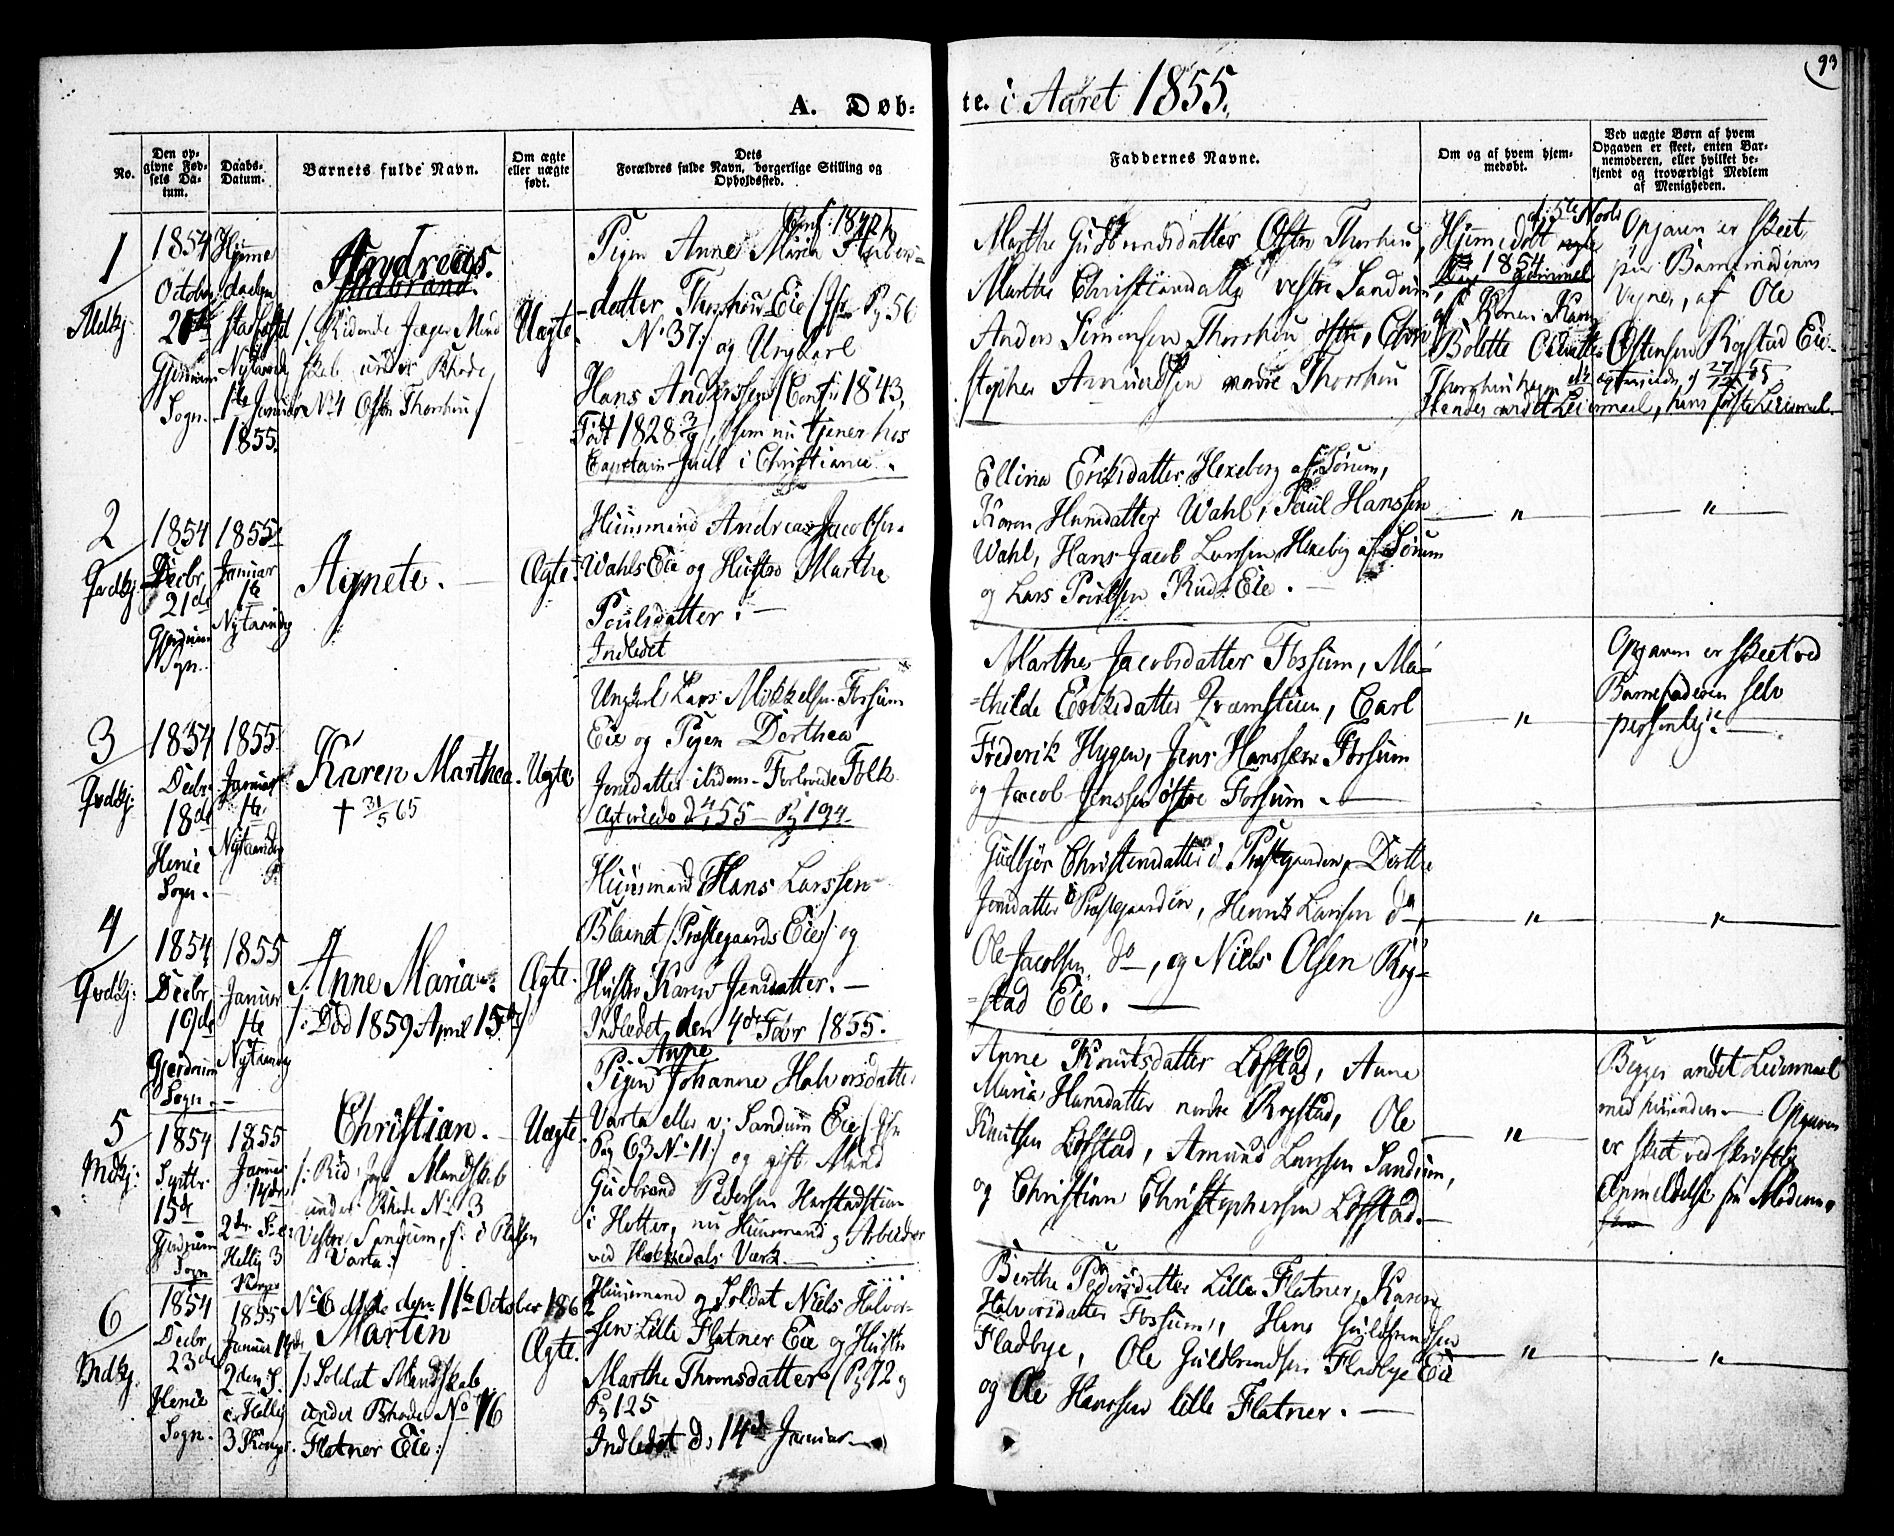 93
A. Døb-
te. i Aaret 1855.
No.
Den op-
givne Fød-
sels Da-
tum.
Daabs-
Datum.
Barnets fulde Navn.
Om ægte
eller uægte
født.
Dets
Forældres fulde Navn, borgerlige Stilling og
Opholdssted.
Faddernes Navne.
Om og af hvem hjem-
medøbt.
Ved uægte Børn af hvem
Opgaven er skeet, enten Bar-
nemoderen, eller hvilket be-
kjendt og troværdigt Medlem
af Menigheden.
1
1854
October
Gjerdrum
Sogn.
Hjemme
1ste Januar
1855.
Andreas.
under Rhode
No 4 Østre Thorshou
Uægte.
Pigen Anne Maria
datter Thorshou Eie Pg 56
No 37 og Ungkarl
Hans Anderssen (Conf: 1843,
Født 1828 som nu tjener hos
Capitain Juell i Christiania.
Marthe Gulbrandsdatter Østre Thorshou,
Marthe Christiansdatter vestre Sandum,
Anders Simensen Thorshou østre, Chri
stopher Amundsen nordre Thorshou
Hjemmedøbt
1854
af Konen Karen
Bolette
Opgaven er skeet
paa Barnemoderens
Vegne, af Ole
Østensen Rogstad Eie.
Hendes andet Leiermaal, hans første Leiermaal.
2
Qvdkj:
1854
Decbr
21de
Gjerdrum
Sogn.
1855
Januar
1te
Nytaarsdag
Agnete.
Ægte.
Huusmand Andreas Jacobsen
Wahls Eie og Hustro Marthe
Poulsdatter.
Indledet
Ellina Eriksdatter Hexeberg af Sørum,
Karen Hansdatter Wahl, Paul Hanssen
Wahl, Hans Jacob Larssen Hexeberg af Sørum
og Lars Poulsen Rud Eie.
"
"
3
Qvdkj:
1854
Decbr
18de
Henie
Sogn.
1855
Januar
1te
Nytaarsdag
Karen Marthea
† 31/5 65
Uægte
Ungkarl Lars Mikkelsen Fossum
Eie og Pigen Dorthea
Jensdatter ibidem. Forlovede Folk.
Marthe Jacobsdatter Fossum, Ma-
thilde Eriksdatter Qvæmstuen, Carl
Frederik Hygen, Jens Hanssen Fossum
og Jacob Jenssen østre Fossum.
"
Opgaven er skeet ved
Barnefaderen selv
personlig.
4
Qvdkj:
1854
Decbr
19de
Gjerdrum
Sogn.
1855
Januar
1te
Nytaarsdag
Anne Maria.
/: Død 1859 April 15de /
Ægte.
Huusmand Hans Larssen
Præstegaards Eie og
Hustro Karen Jensdatter.
Indledet den 4de Febr 1855.
Gulbjør Christensdatter i Præstegaarden, Dorthe
Jonsdatter Præstegaarden, Henrik Larssen do,
Ole Jacobsen do, og Niels Olsen Rog-
stad Eie.
"
"
5
Mdkj:
1854
Septbr
15de
Gjerdrum
Sogn
1855
Januar
14de
2den S. e:
Hellig 3
Konger
Christian.
Mandskab
under Rhode No 3
Vestre Sandum, f: i Pladsen
Varta:/
Uægte.
Pigen Anne Johanne Halvorsdatter
Varta eller v: Sandum Eie
Pag 63 No 11:/ og gift Mand
Gulbrand Pedersen Harstadstuen
i Hotter, nu Huusmand og Arbeider
ved Hakkedals Værk.
Anne Knutsdatter Løfstad, Anne
Maria Hansdatter nordre Rogstad, Ole
Knutsen Løfstad, Amund Larssen Sandum,
og Christian Christophersen Løfstad.
"
Begges andet Leiermaal
med hinanden. Opgaven
er skeet ved skriftlig
Anmeldelse fra Moderen.
6
Mdkj.
1854
Decbr
23de
Henie
Sogn.
1855
Januar 14de
2den S.
e: Hellig
3 Konger.
Marten
/: Soldat Mandskab
under Rhode No 16
Flatner Eie:/
Ægte.
Huusmand og Soldat Niels Halvor-
sen Lille Flatner Eie og Hustro
Marthe Thomsdatter (Pg 72 og
Pg 125
Indledet d: 14de Januar.
Berthe Pedersdatter Lille Flatner, Karen
Halvorsdatter Fossum, Hans Guldbrandsen
Fladbye, Ole Guldbrandsen Fladbye Eie
og Ole Hanssen lille Flatner.
"
"